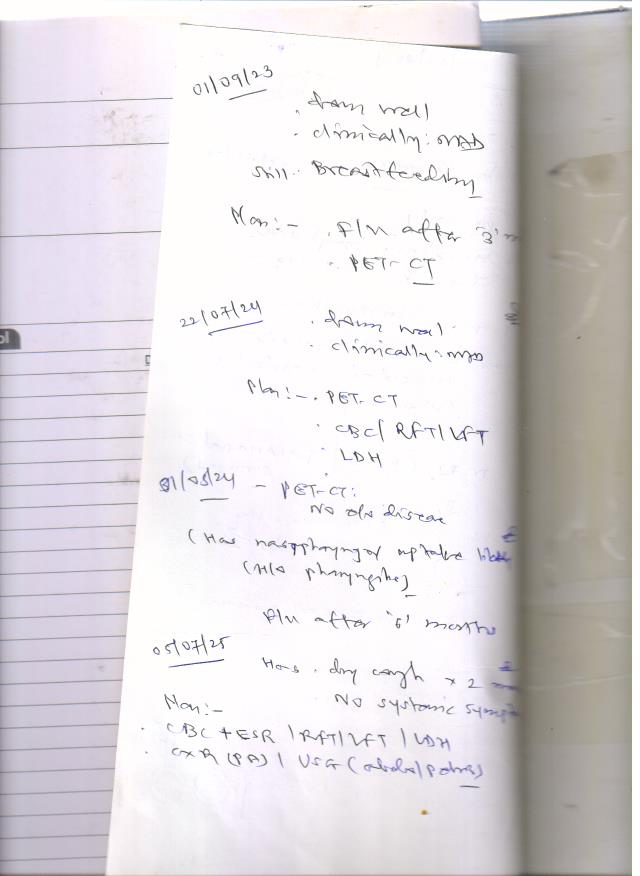 01/09/23
. doing well
. clinically: NAD
still.. Breastfeeding
Plan:- . F/U after '3' m
. PET-CT
22/07/24
. doing well.
. clinically: NAD
Plan:- . PET-CT
. CBC/ RFT/ LFT
. LDH
31/08/24 - PET-CT:
No e/o disease
(Has nasopharyngeal uptake likely
(H/o pharyngitis)
F/U after '6' months
05/07/25
Has . dry cough x 2
No systemic sympt
Plan:-
. CBC + ESR / RFT/ LFT / LDH
. CXR (PA) / USG (abdo/pelvis)